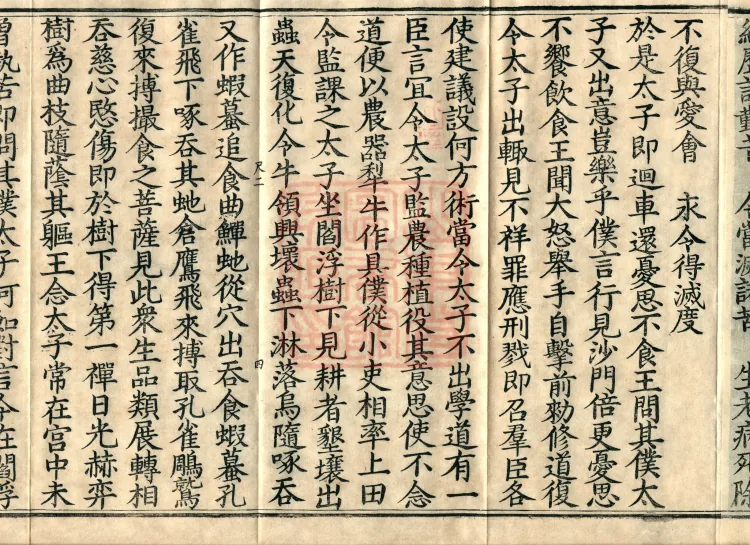 不復與愛會　永令得滅度
於是太子即迴車還憂思不食王問其僕太
子又出意豈樂乎僕言行見沙門倍更憂思
不饗飲食王聞大怒舉手自擊前勑修道復
令太子出輙見不祥罪應刑戮即召羣臣各
使建議設何方術當令太子不出學道有一
臣言宜令太子監農種植役其意思使不念
道便以農器犁牛作具僕從小吏相率上田
令監課之太子坐閻浮樹下見耕者墾壤出
蟲天復化令牛領興壞蟲下淋落烏隨啄吞
尺二
四
又作蝦蟇追食曲蟺虵從穴出吞食蝦蟇孔
雀飛下啄吞其虵倉鷹飛來搏取孔雀鵰鷲
復來搏撮食之菩薩見此衆生品類展轉相
吞慈心愍傷即於樹下得第一禪日光赫弈
樹爲曲枝隨蔭其軀王念太子常在宫中未
曾執苦即問其僕太子何如對言今在閻浮